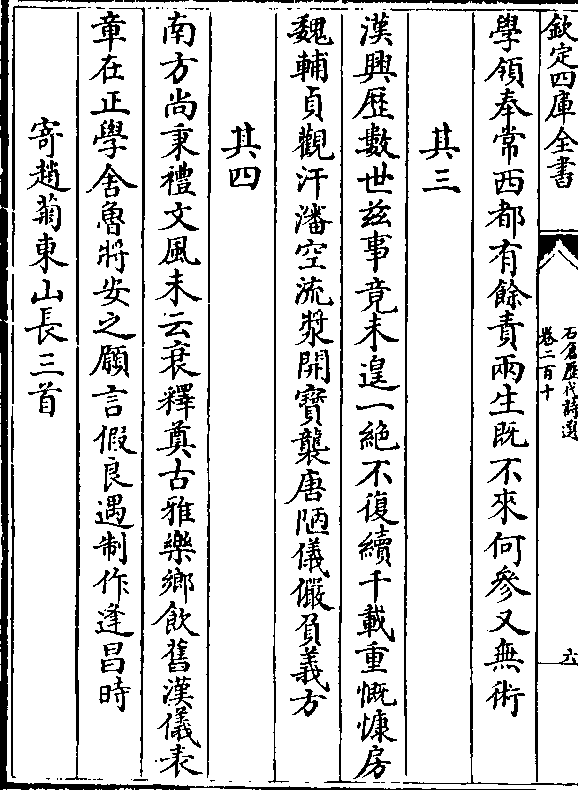 欽定四庫全書
石倉歷代詩選
卷二百十
六
學領奉常西都有餘責兩生既不來何參又無術
其三
漢興歷數世兹事竟未遑一絶不復續千載重慨慷房
魏輔貞觀汗瀋空流漿開寶襲唐陋儀儼負義方
其四
南方尚秉禮文風未云衰釋奠古雅樂鄉飲舊漢儀表
章在正學舍魯將安之願言假良遇制作逢昌時
寄趙菊東山長三首